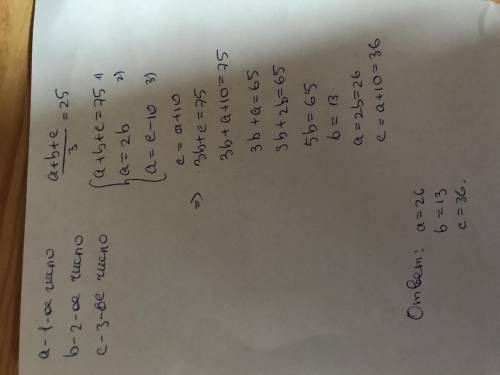 a - 1-ое число
b - 2-ое число
c - 3-ое число
(a+b+c)/3 = 25
{ a+b+c=75 1)
a = 2b 2)
{ a = c-10 3)
c = a+10
=> 3b+c=75
3b+a+10=75
3b+a=65
3b+2b=65
5b=65
b = 13
a=2b=26
c = a+10=36
Ответ: a=26
b = 13
c = 36.